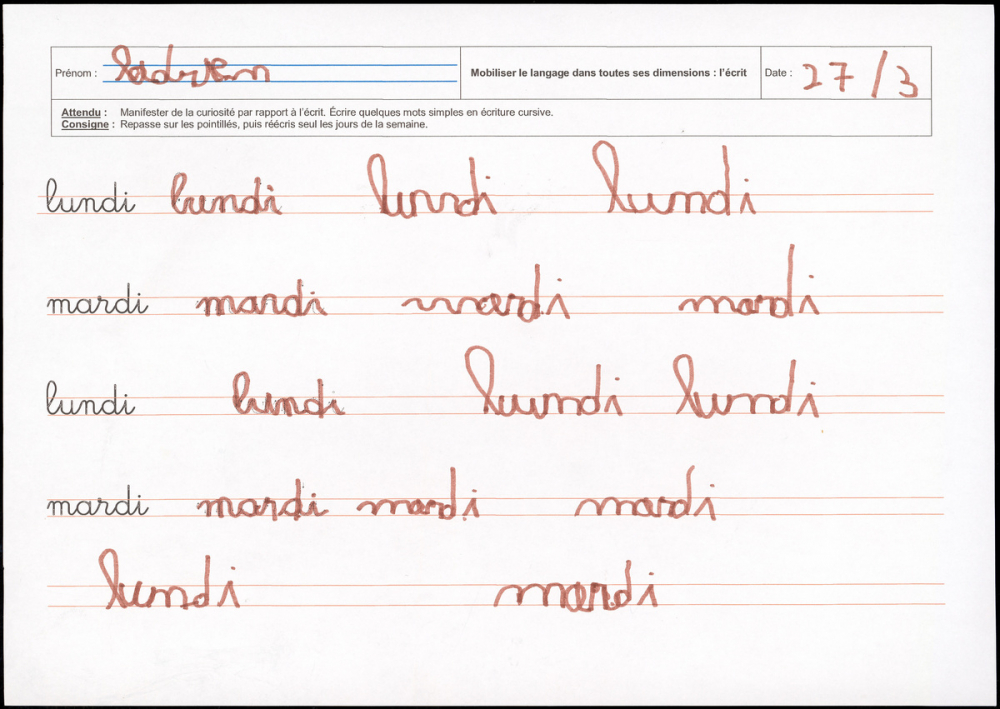 Prénom :
Mobiliser le langage dans toutes ses dimensions : l'écrit
Date : 27/3
Attendu : Manifester de la curiosité par rapport à l'écrit. Écrire quelques mots simples en écriture cursive.
Consigne : Repasse sur les pointillés, puis réécris seul les jours de la semaine.
lundi lundi lundi lundi
mardi mardi mardi mardi
lundi lundi lundi lundi
mardi mardi mardi mardi
lundi mardi